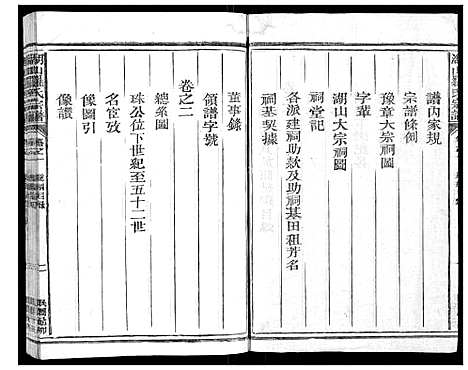 譜內家規
宗譜條例
豫章大宗祠圖
字輩
湖山大宗祠圖
祠堂記
各派建祠助款及助祠基田租芳名
祠基契據
董事錄
領譜字號
卷之二
總系圖
珠公位下世紀至五十二世
名宦攷
像圖引
像讚